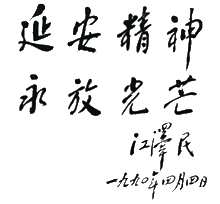 延安精神
永放光芒
江泽民
一九九〇年四月四日